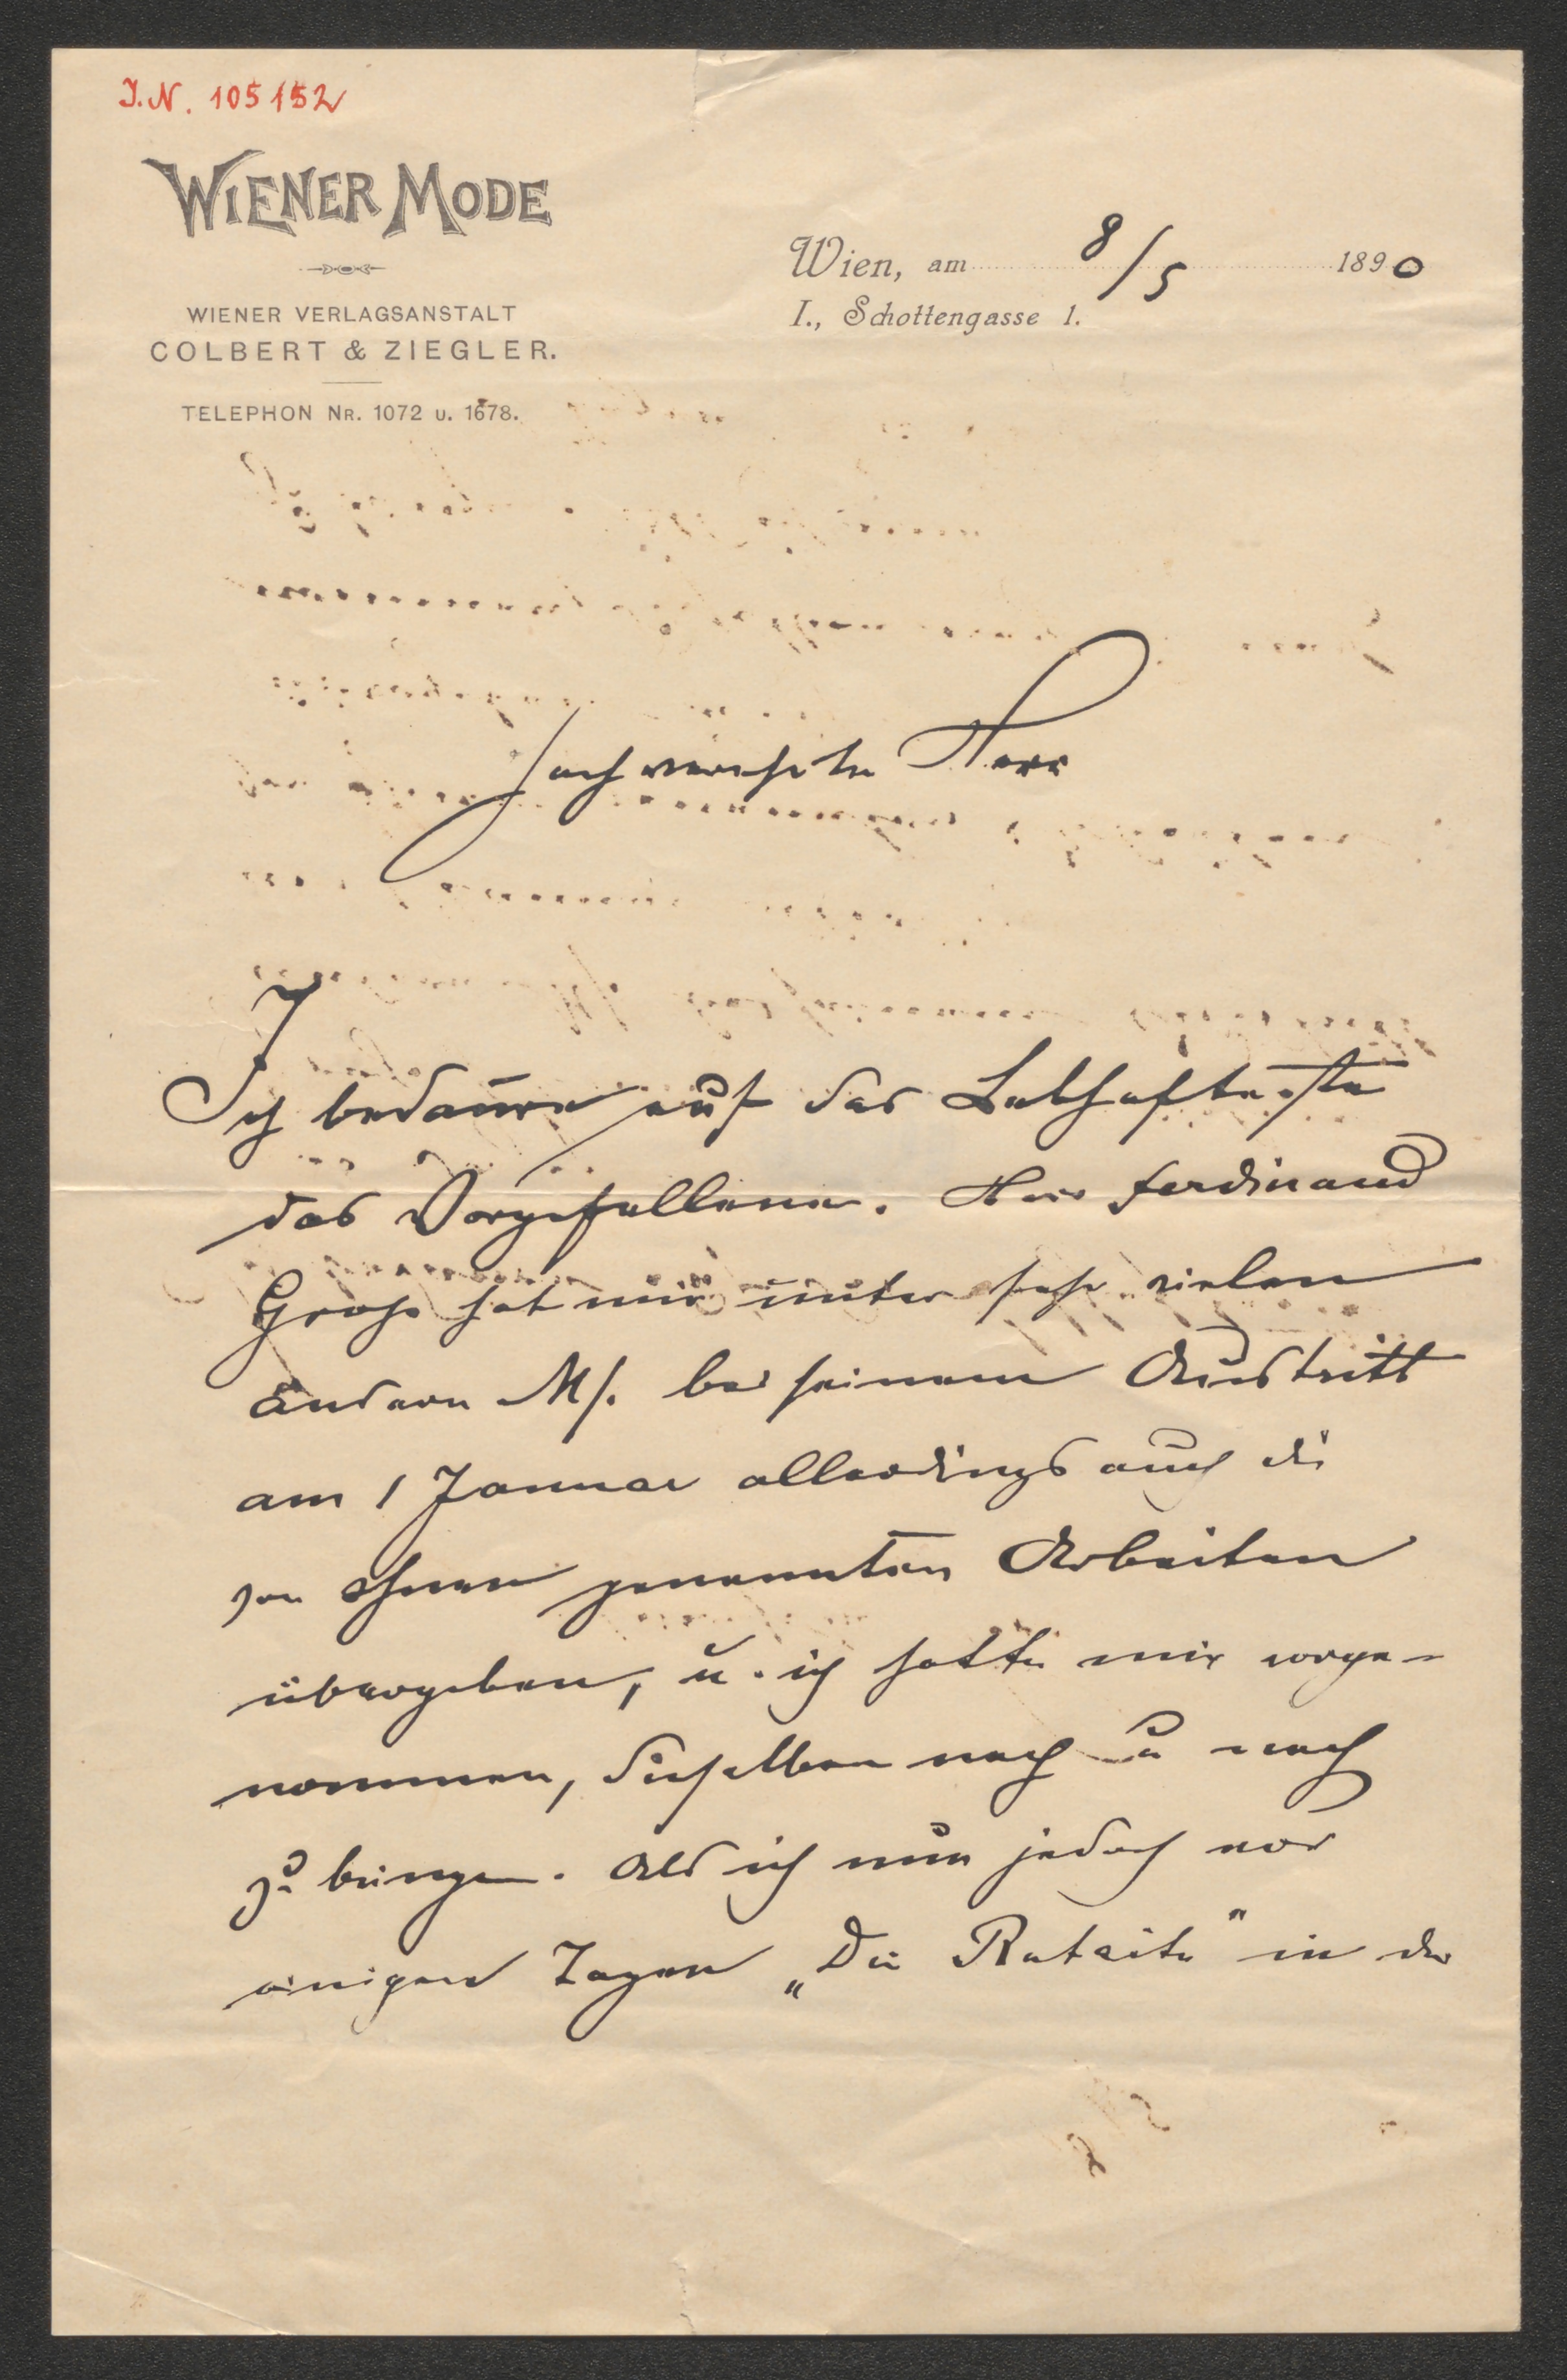 I.N. 105152
WIENER MODE
WIENER VERLAGSANSTALT
COLBERT & ZIEGLER.
TELEPHON NR. 1072 U. 1678.
Wien, am 8/5 1890
I., Schottengasse 1.
Hochverehrter Herr
Ich bedaure auf das Lebhafteste
das Vorgefallene. Herr Ferdinand
Groß hat mir unter sehr vielen
andern Ms. bei seinem Austritt
am 1 Januar allerdings auch die
von Ihnen genannten Arbeiten
übergeben, u. ich hatte mir vorge-
nommen, dieselben nach u nach
zu bringen. Als ich nun jedoch vor
einigen Tagen „Die " in der